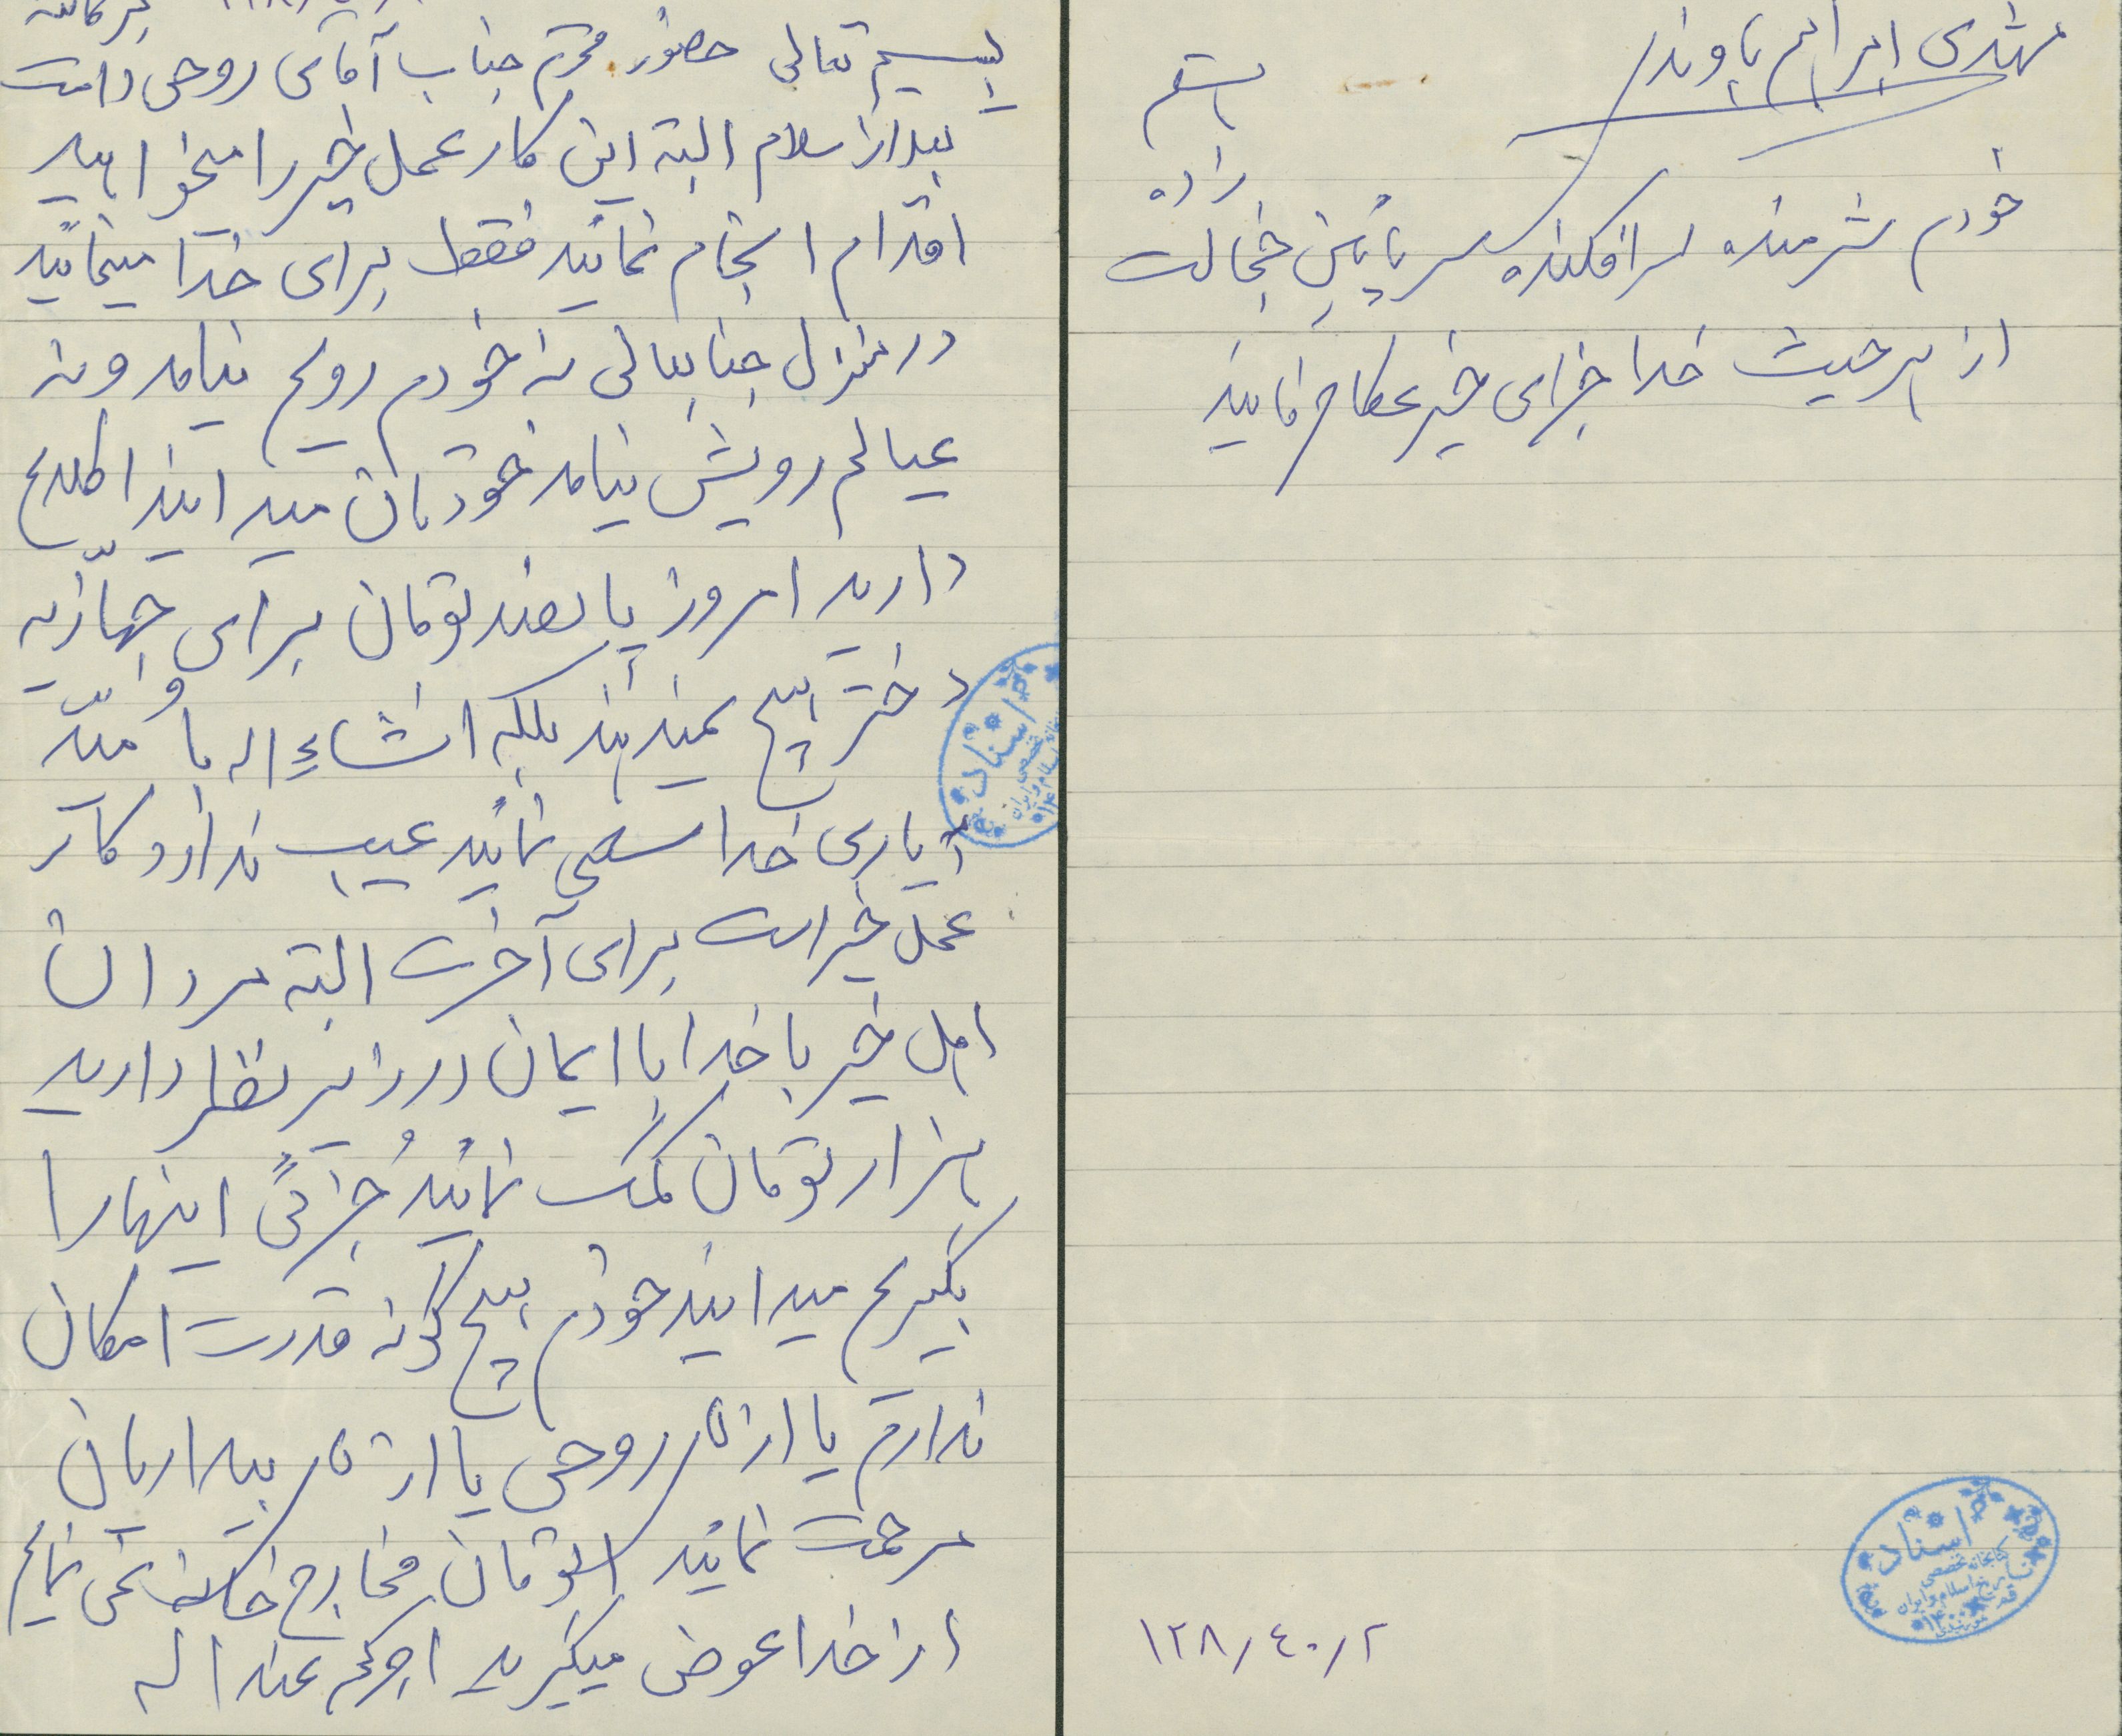 بسمه تعالی حضور محترم جناب آقای روحی دامت
برکاته
بعداز سلام البته این کار عمل خیر را میخواهید
اقدام انجام نمائید فقط برای خدا مینمائید
در منزل جنابعالی نه خودم رویم نیامد و نه
عیالم رویش نیامد خودتان میدانید اطلاع
دارید امروز پانصد تومان برای جهازیه
دختر هیچ نمیدهند بلکه انشاءاله با امید
یاری خدا سعی نمائید عیب ندارد کار
عمل خیر است برای آخرت البته مردان
اهل خیر با خدا با ایمان در زیر نظر دارید
هزار تومان کمک نمائید جزئی اینها را
بگیریم میدانید خودم هیچ گونه قدرت امکان
ندارم یا از روحی یا از بیداریان
مرحمت نمائید تومان مخارج نمی نمایم
از خدا عوض میگیرید اجرکم عنداله
مشهدی ابراهیم پاوندر
رستم
زاده
خودم شرمنده سرافکنده سر پائین خجالت
از هر حیث خدا جزای خیر عطا فرمایند
اسناد
کتابخانه تخصصی
تاریخ اسلام و ایران
اسناد
کتابخانه تخصصی
تاریخ اسلام و ایران
۱۲۸/٤۰/۲